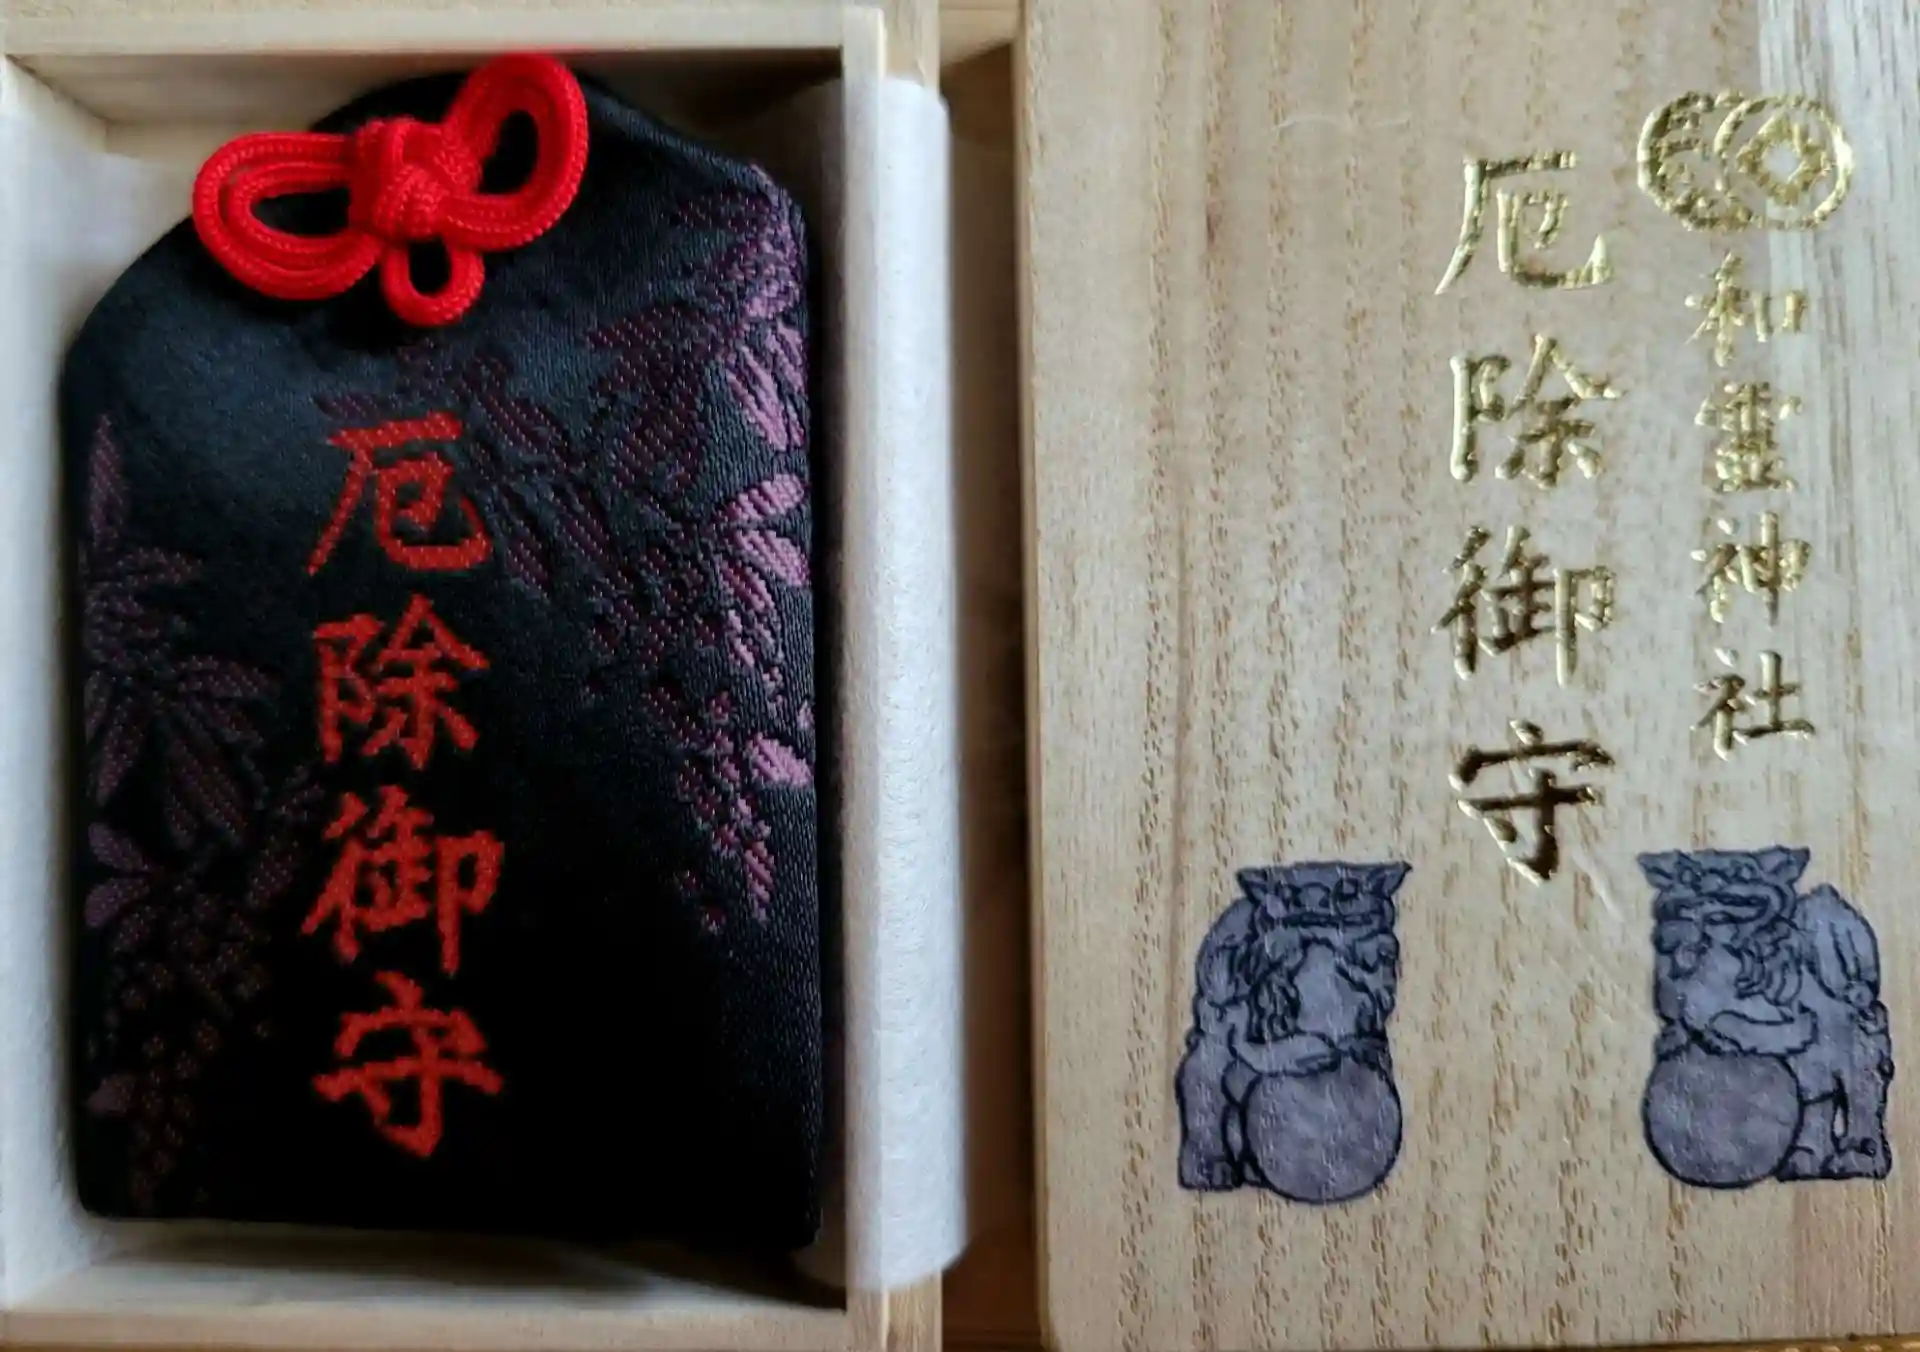 厄除御守
和靈神社
厄除御守